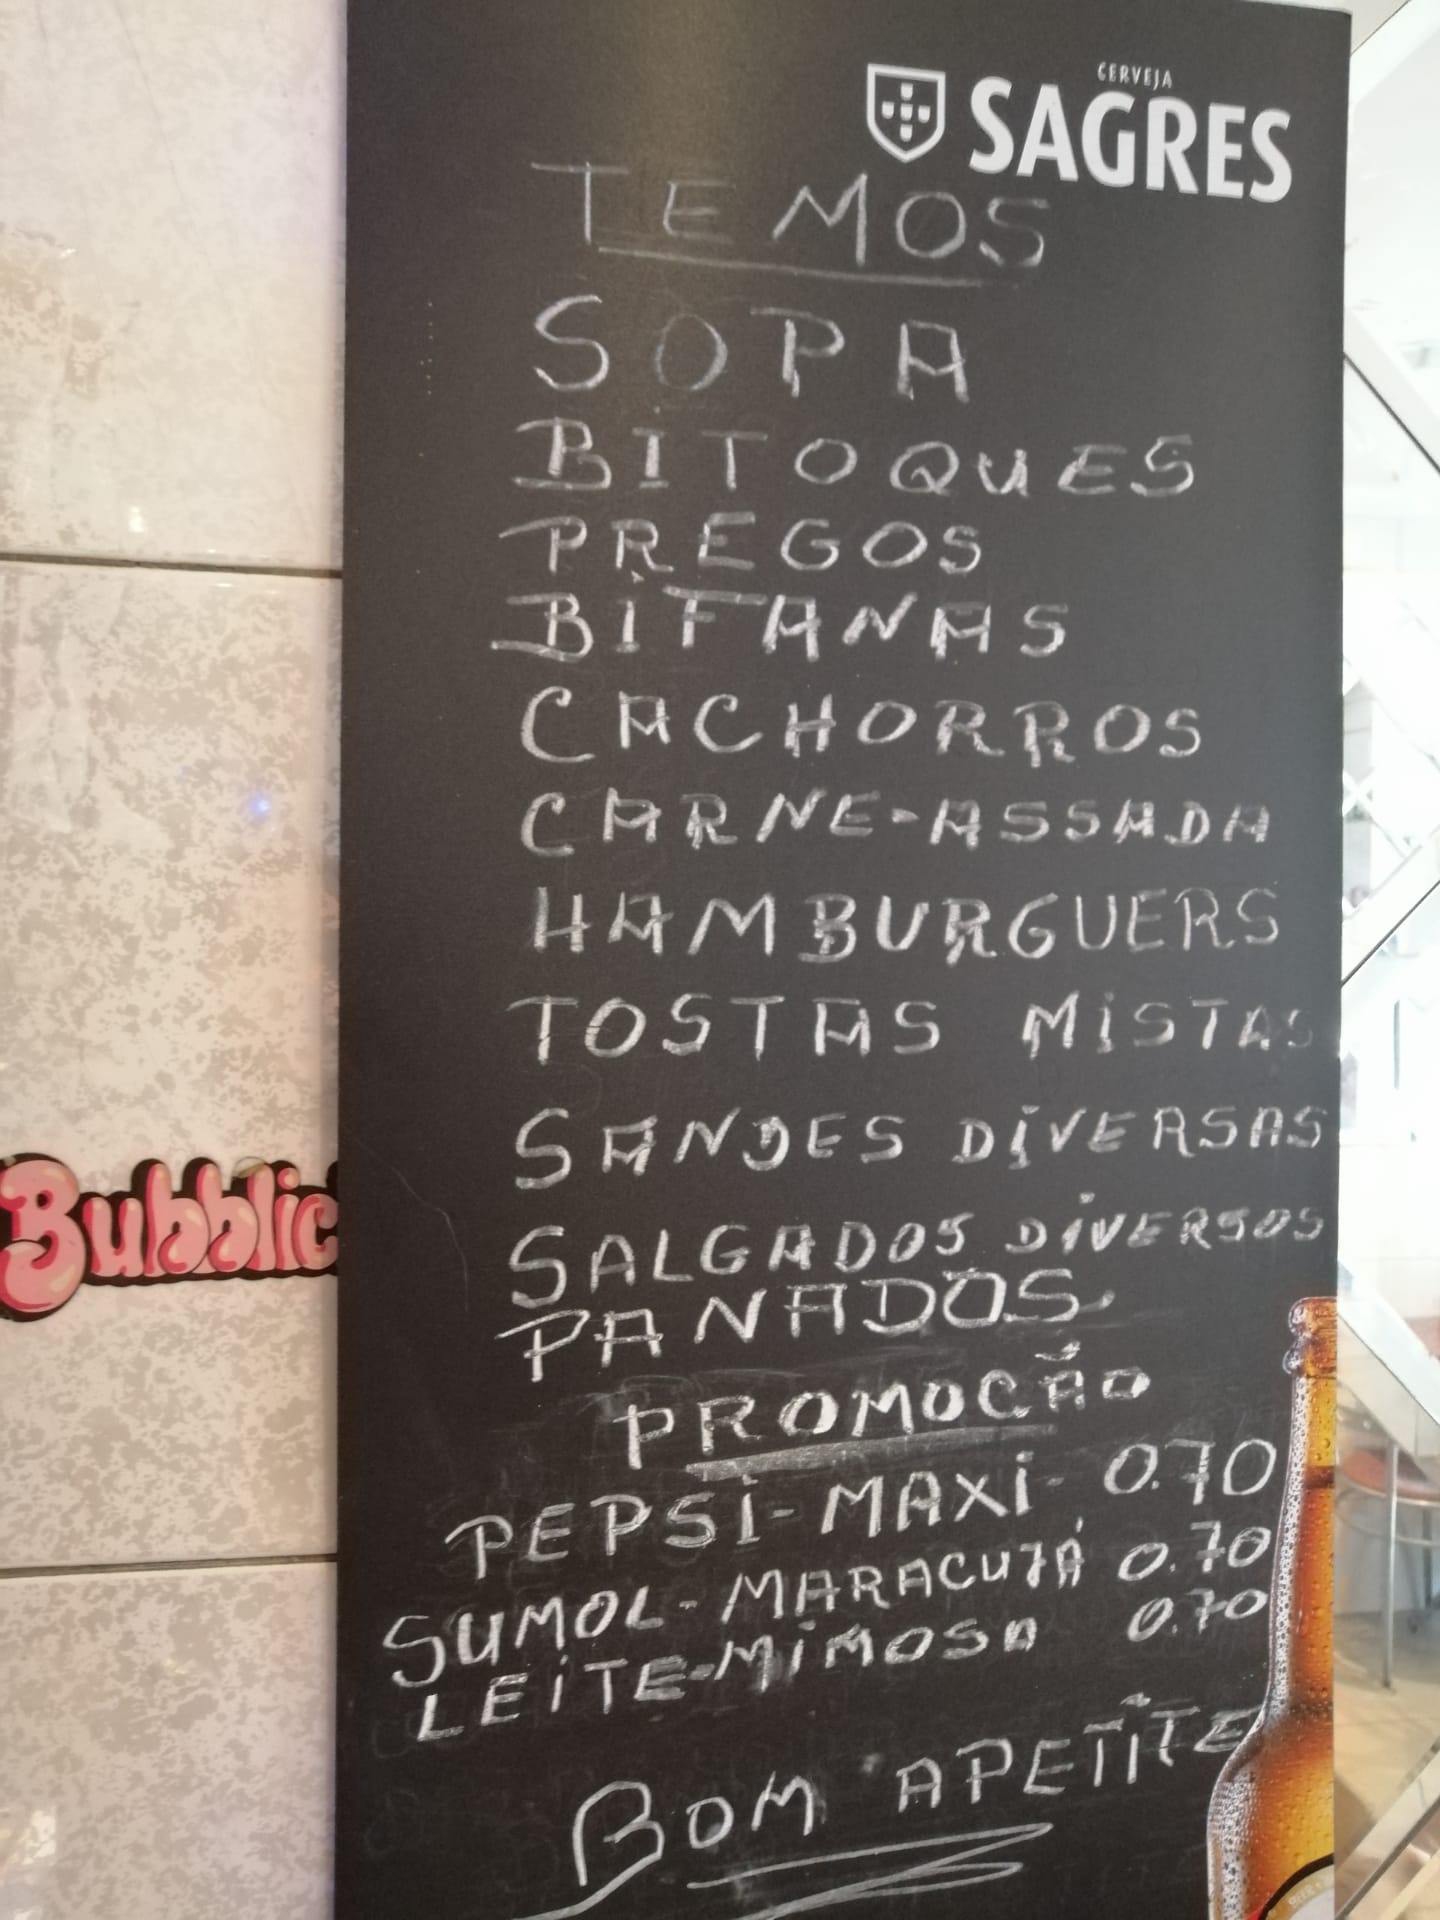 CERVEJA
SAGRES
TEMOS
SOPA
BITOQUES
PREGOS
BIFANAS
CACHORROS
CARNE-ASSADA
HAMBURGUERS
TOSTAS MISTAS
SANDES DIVERSAS
SALGADOS DIVERSOS
PANADOS
PROMOCÃO
PEPSI-MAXI- 0.70
SUMOL-MARACUJÁ 0.70
LEITE-MIMOSA 0.70
BOM APETITE
Bubblic